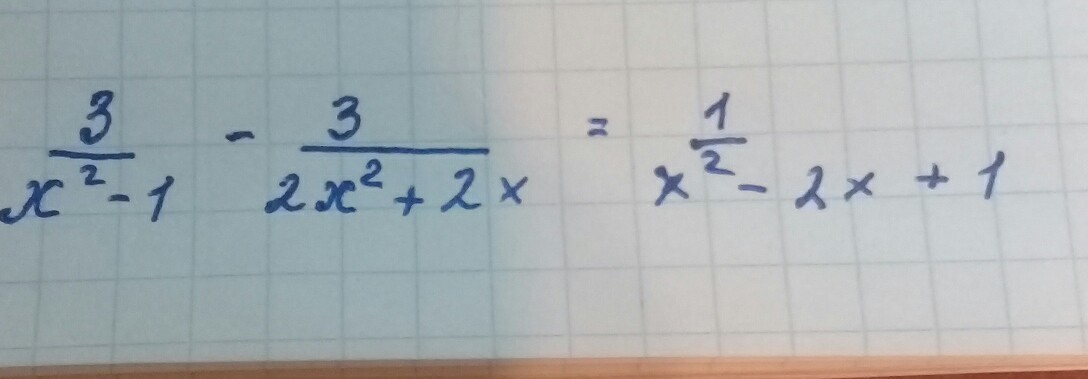 3/(x² - 1) - 3/(2x² + 2x) = 1/(x² - 2x + 1)